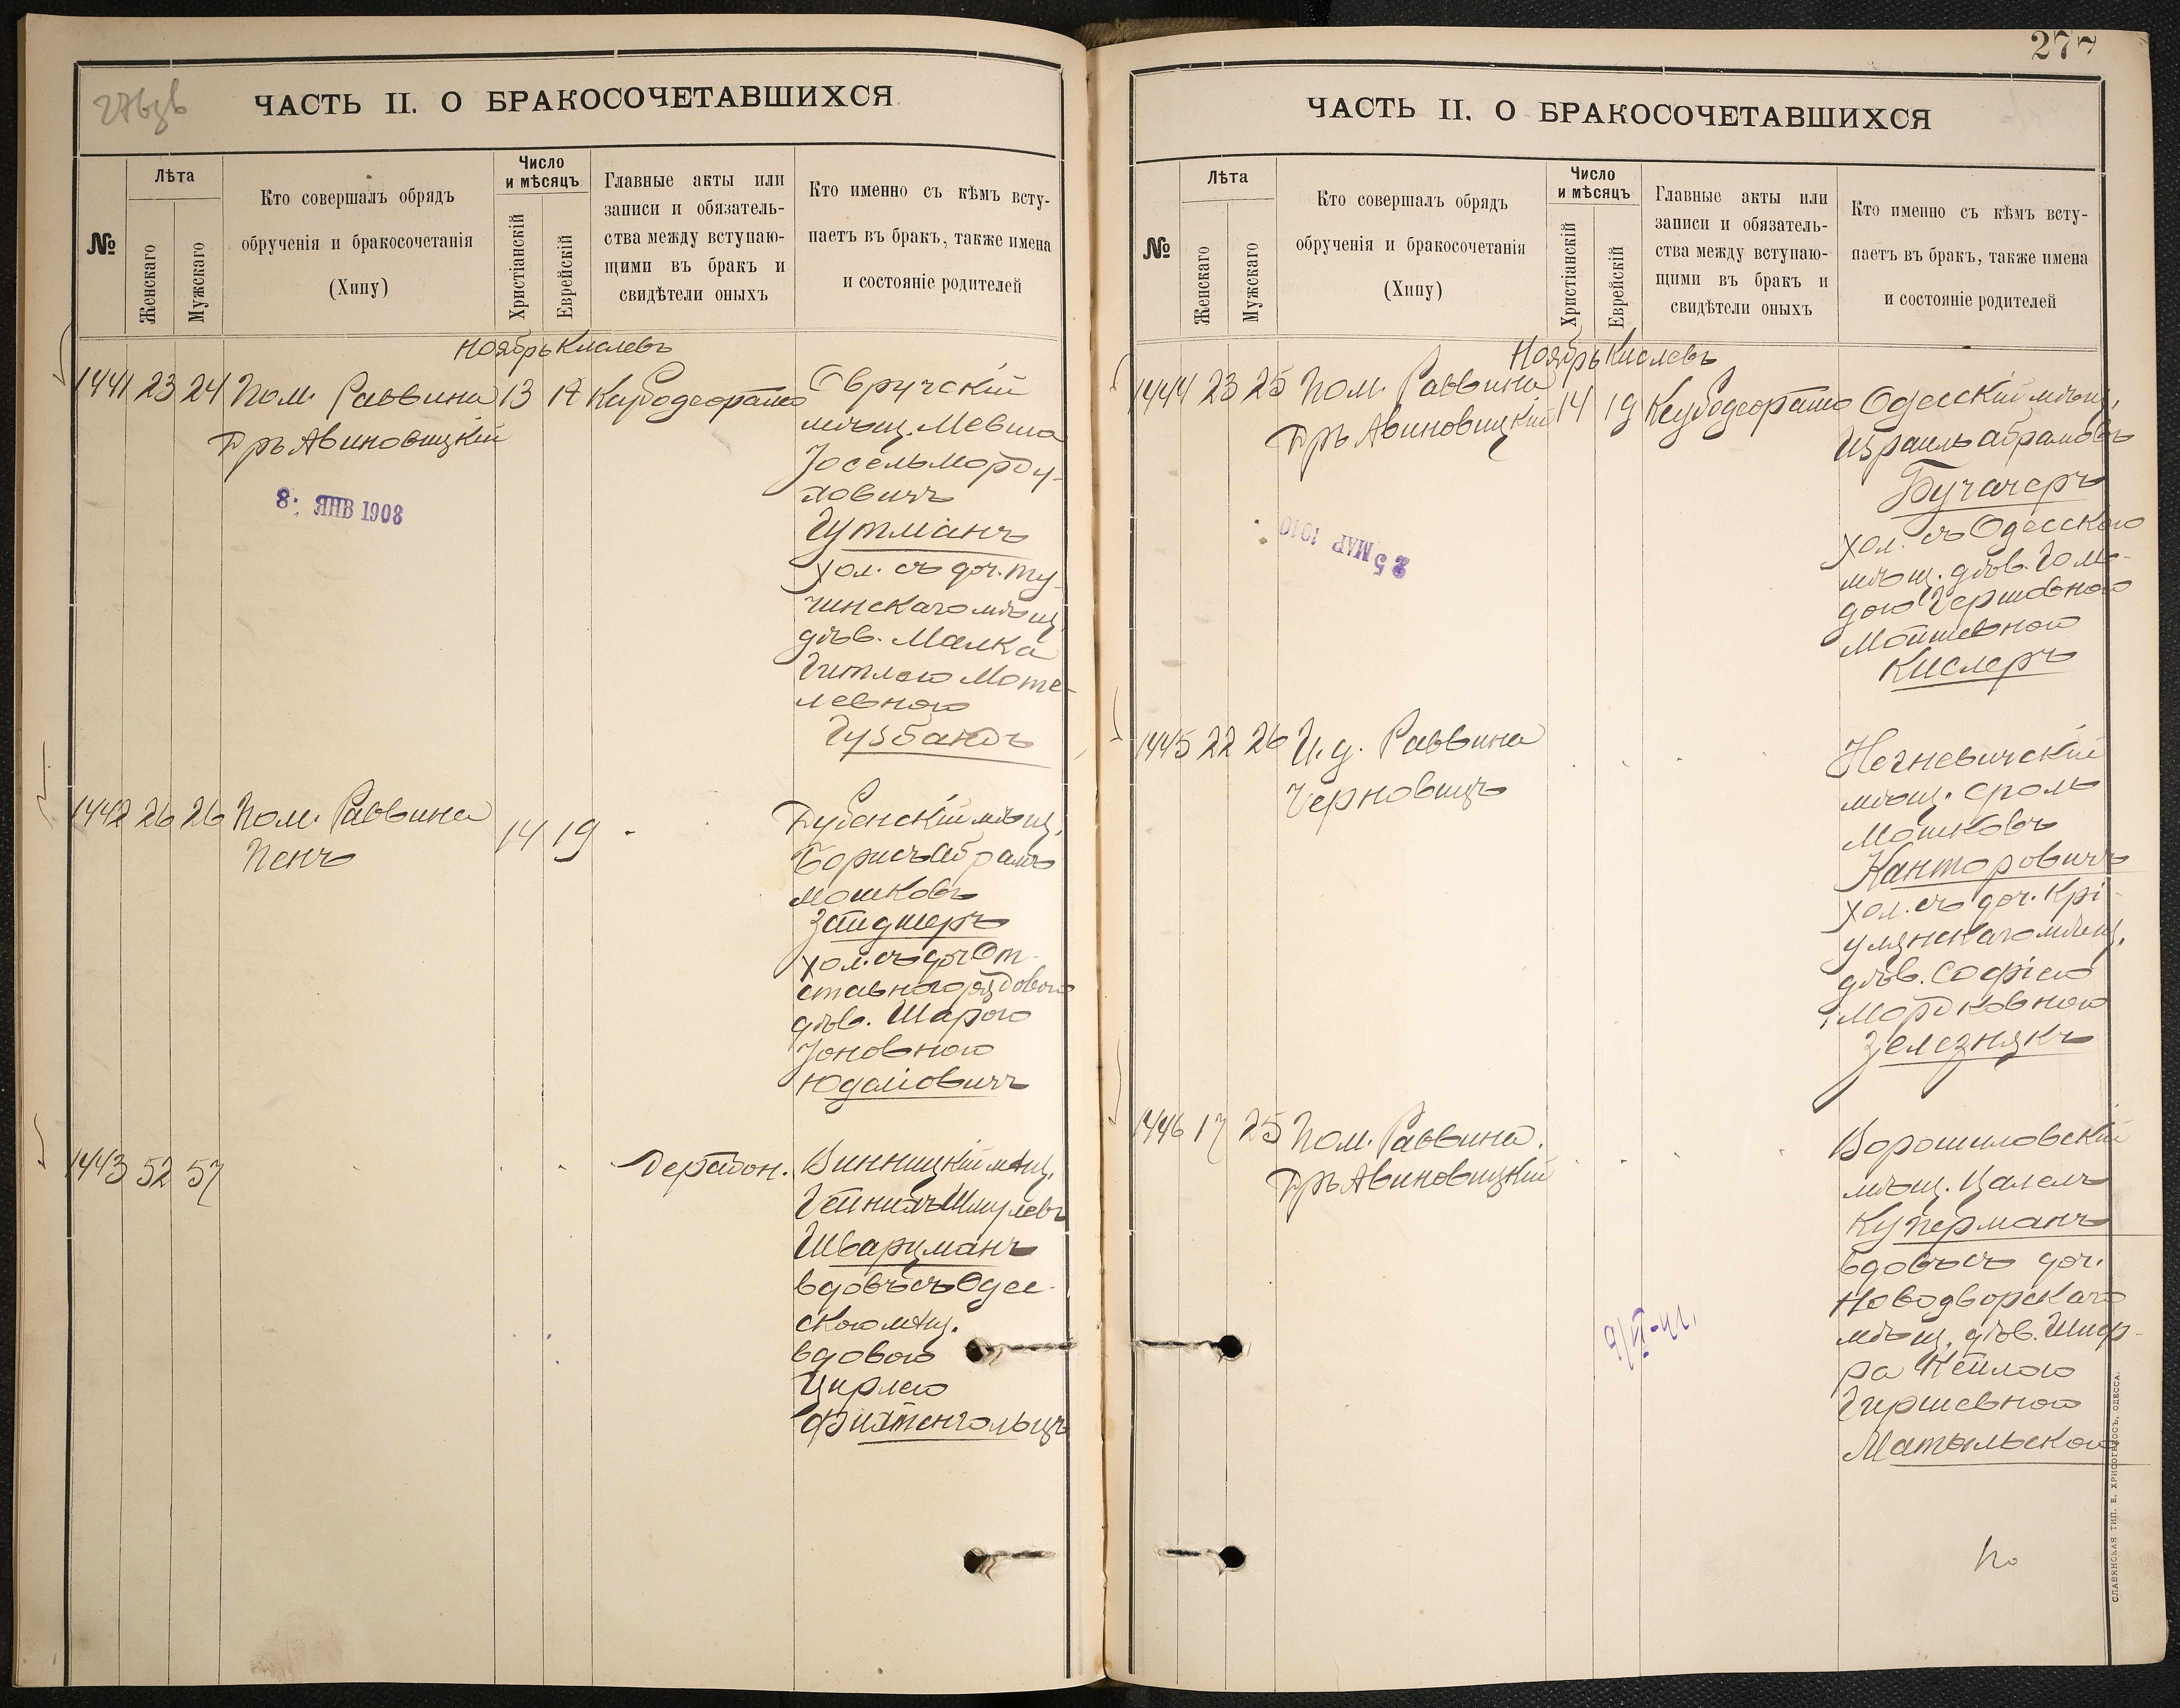 276зв
ЧАСТЬ II. О БРАКОСОЧЕТАВШИХСЯ
№
Лѣта
Женскаго
Мужскаго
Кто совершалъ обрядъ
обрученія и бракосочетанія
(Хипу)
Число
и мѣсяцъ
Христіанскій
Еврейскій
Главные акты или
записи и обязатель-
ства между вступаю-
щими въ бракъ и
свидѣтели оныхъ
Кто именно съ кѣмъ всту-
паетъ въ бракъ, также имена
и состояніе родителей
Ноябрь Кислевъ
1441 23 24 Пом. Раввина 13 Овручскій
Дръ Авиновицкій
мѣщ. Мевша
Іосель Морду-
ховичъ
8: ЯНВ 1908
Гутманъ
хол. съ доч. Ту-
чинскаго мѣщ.
дѣв. Малка
Гитлею Моте-
левною
Гузбандъ
1442 26 26 Пом. Раввина 14 19 Дубенскій мѣщ.
Пенъ
Борисъ Абрамъ
Мошковъ
Зайдшеръ
хол. съ доч. От-
ставного рядового
дѣв. Шарою
Іоновною
Юдаіовичъ
1443 52 57 Винницкій мѣщ.
Гейнихъ Шмулевъ
Шварцманъ
вдовъ съ Одес-
скою мѣщ.
вдовою
Цирлею
Фихтенгольцъ
277
ЧАСТЬ II. О БРАКОСОЧЕТАВШИХСЯ
№
Лѣта
Женскаго
Мужскаго
Кто совершалъ обрядъ
обрученія и бракосочетанія
(Хипу)
Число
и мѣсяцъ
Христіанскій
Еврейскій
Главные акты или
записи и обязатель-
ства между вступаю-
щими въ бракъ и
свидѣтели оныхъ
Кто именно съ кѣмъ всту-
паетъ въ бракъ, также имена
и состояніе родителей
Ноябрь Кислевъ
1444 23 25 Пом. Раввина 14 19 Одесскій мѣщ.
Дръ Авиновицкій
Израиль Абрамовъ
Бучачеръ
25 МАР 1910
хол. съ Одесскою
мѣщ. дѣв. Голь-
дою Гершовною
Мошковною
Кислеръ
1445 22 26 И. д. Раввина
Черновицъ
Негневичскій
мѣщ. Сроль
Мошковъ
Канторовичъ
хол. съ доч. Крі-
улянскаго мѣщ.
дѣв. Софіею
Мордковною
Железнякъ
1446 17 25 Пом. Раввина.
Дръ Авиновицкій
Ворошиловскій
мѣщ. Цалель
Куперманъ
вдовъ съ доч.
Новодворскаго
мѣщ. дѣв. Шиф-
ра Кейлою
Гиршевною
Матыльскою
СЛАВЯНСКАЯ ТИП. Е. ХРИСОГЕЛОСЪ, ОДЕССА.